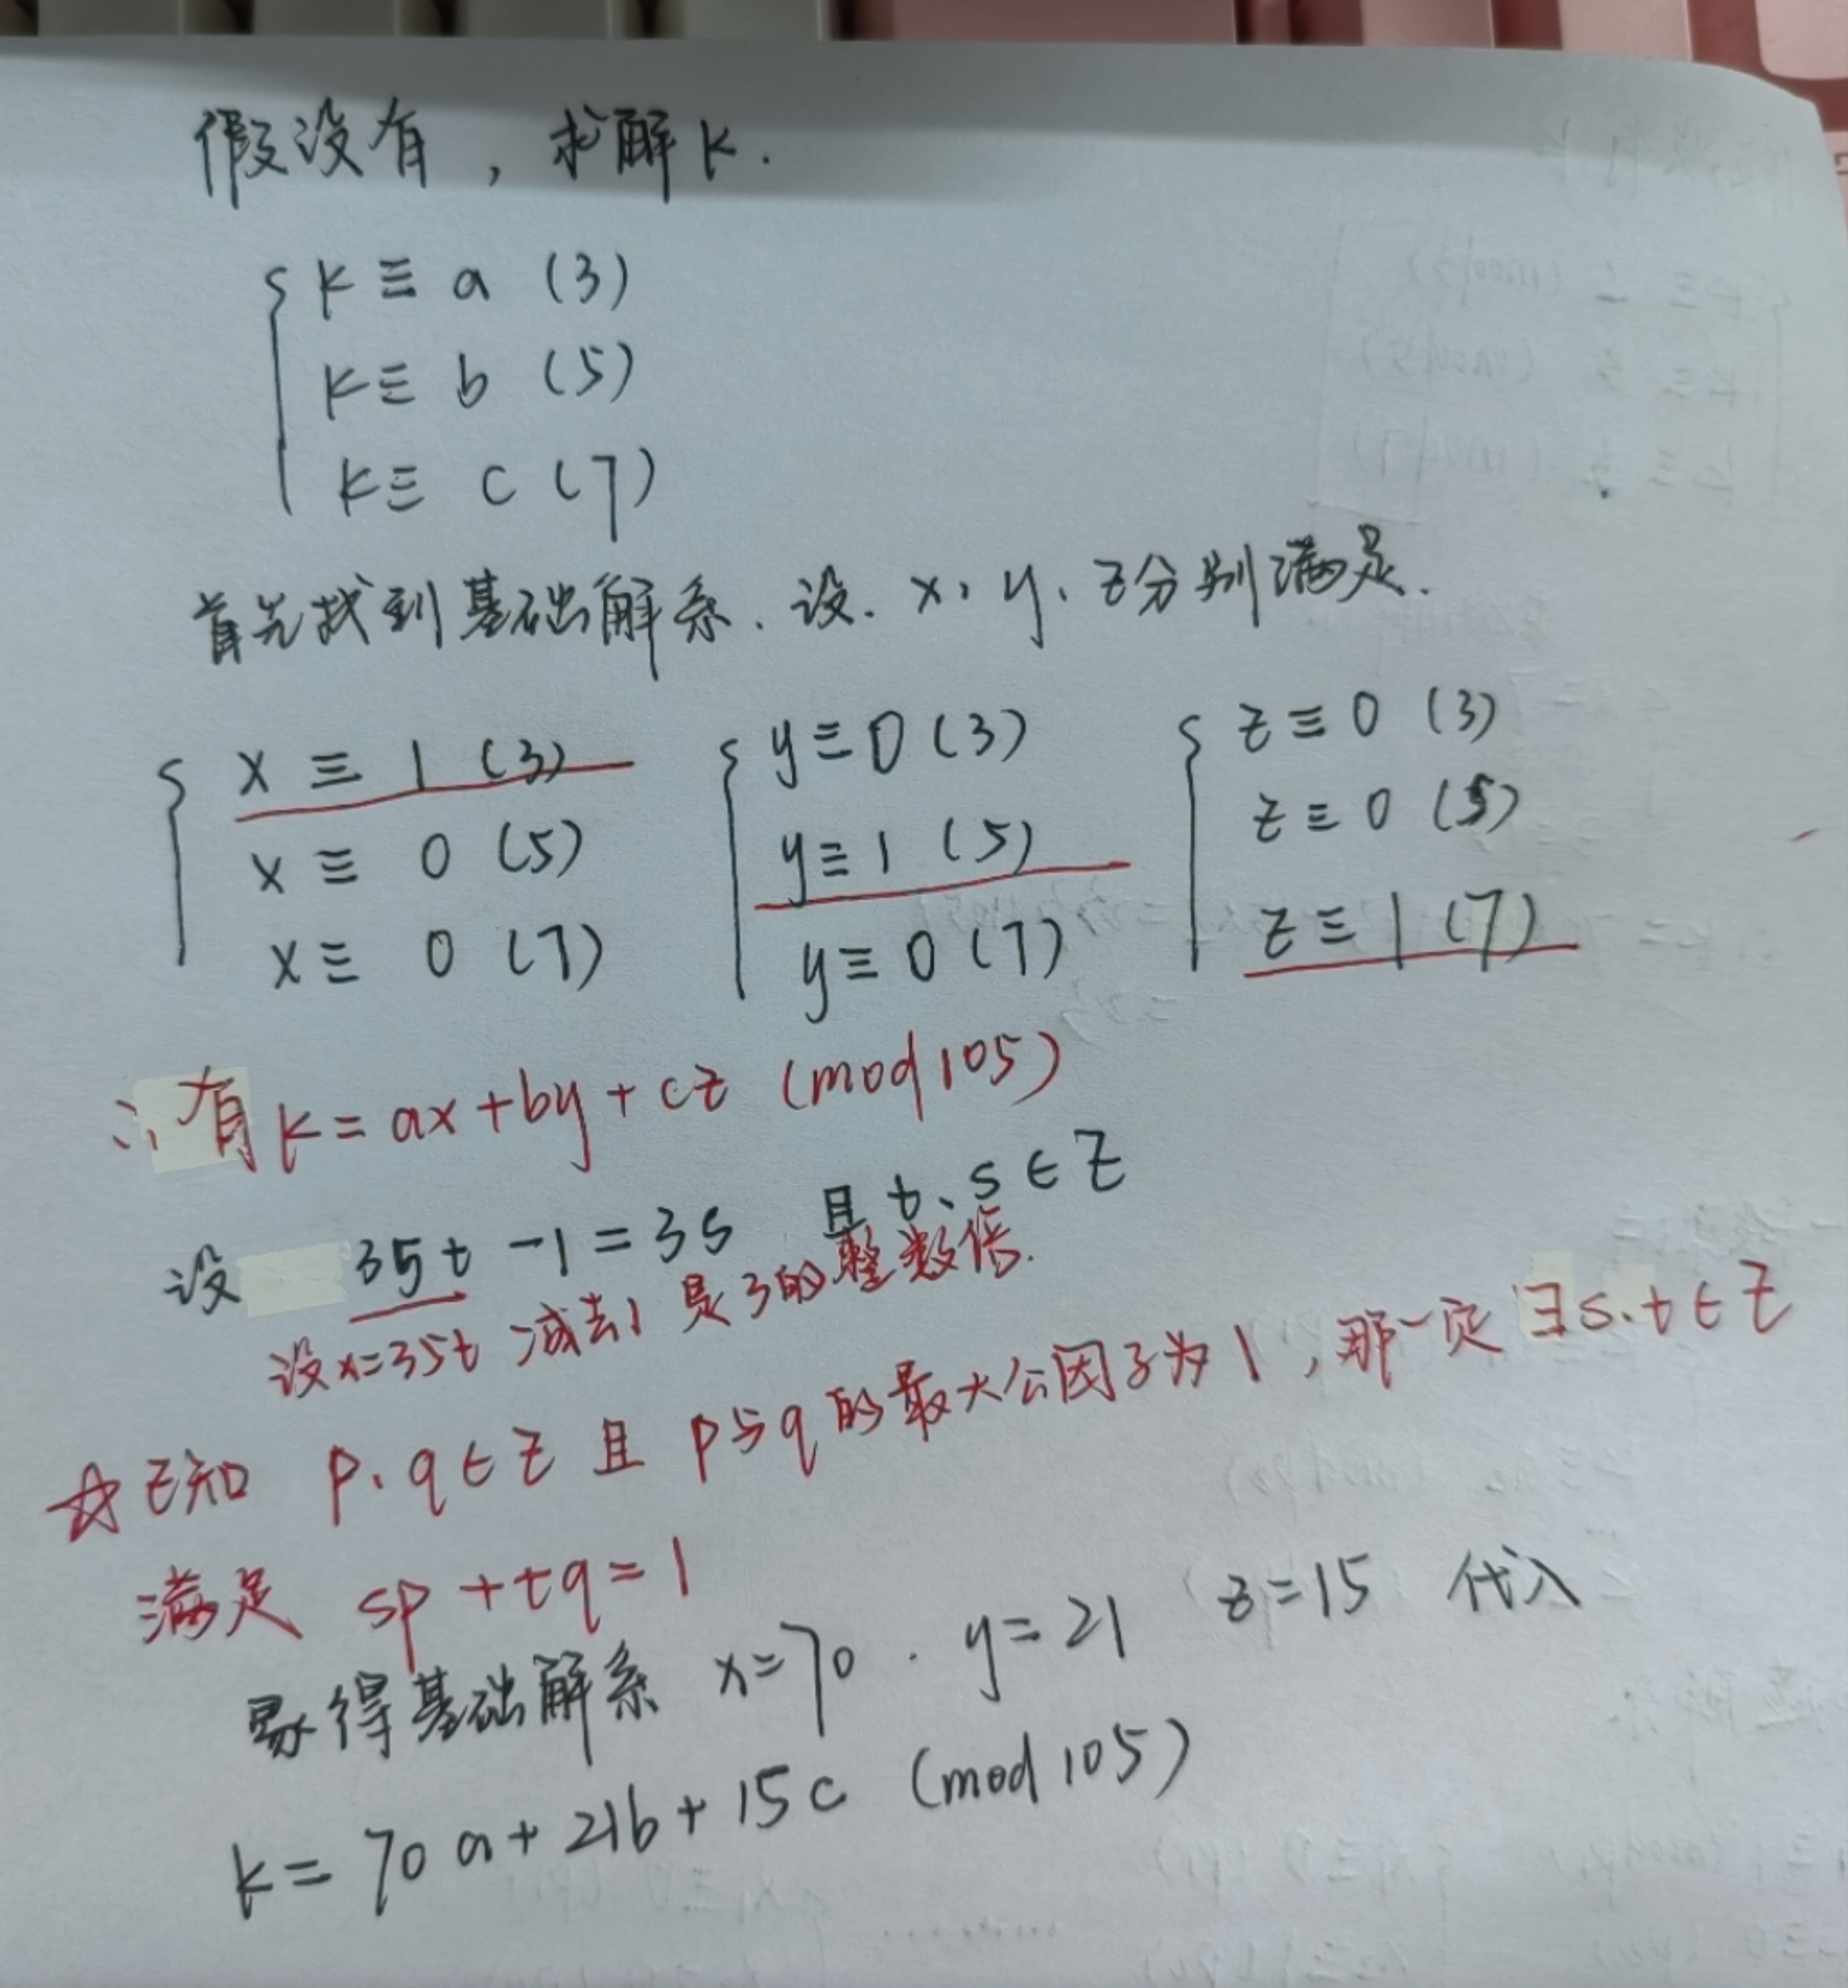 假设有，求解k.
k ≡ a (3)
k ≡ b (5)
k ≡ c (7)
首先找到基础解系.设.x,y、z分别满足.
x ≡ 1 (3) y ≡ 0 (3) z ≡ 0 (3)
x ≡ 0 (5) y ≡ 1 (5) z ≡ 0 (5)
x ≡ 0 (7) y ≡ 0 (7) z ≡ 1 (7)
∴有 k = ax + by + cz (mod 105)
设 35t - 1 = 3s 且 t、s ∈ Z
设x=35t 减去1是3的整数倍.
☆已知 p、q ∈ Z 且 p与q的最大公因子为1，那一定 ∃ s.t ∈ Z
满足 sp + tq = 1
易得基础解系 x=70 . y=21 z=15 代入
k = 70a + 21b + 15c (mod 105)